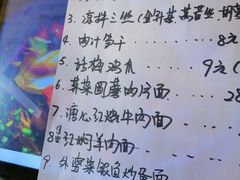 3. 凉拌三丝(金针菜、莴苣丝、
4. 卤汁笋干 8元
5. 话梅鸡爪 9元(
6. 荠菜圆蘑肉片面
7. 溏心红烧牛肉面
8. 红焖羊肉面
9. 外婆菜银鱼炒蛋面